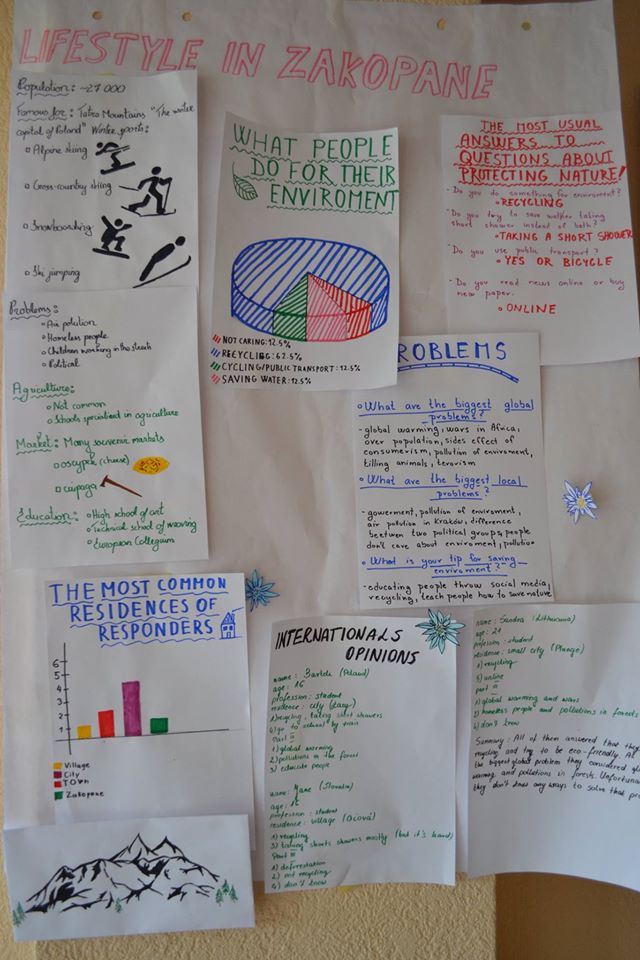 LIFESTYLE IN ZAKOPANE
Population: ~27 000
Famous for: Tatra Mountains "The winter
capital of Poland" Winter sports:
Alpine skiing
Cross-country skiing
Snowboarding
Ski jumping
Problems:
Air polution
Homeless people
Children working in the streets
Political
Agriculture:
Not common
Schools specialized in agriculture
Market: Many souvenir markets
oscypek (cheese)
ciupaga
Education: High school of art
Technical school of weaving
European Collegium
WHAT PEOPLE
DO FOR THEIR
ENVIROMENT
NOT CARING: 12.5%
RECYCLING: 62.5%
CYCLING/PUBLIC TRANSPORT: 12.5%
SAVING WATER: 12.5%
THE MOST USUAL
ANSWERS TO
QUESTIONS ABOUT
PROTECTING NATURE!
Do you do something for enviroment?
RECYCLING
Do you try to save water taking
short shower instead of bath?
TAKING A SHORT SHOWER
Do you use public transport?
YES OR BICYCLE
Do you read news online or buy
new paper.
ONLINE
ROBLEMS
What are the biggest global
problems?
- global warming, wars in Africa,
over population, sides effect of
consumerism, pollution of enviroment,
killing animals, terorism
What are the biggest local
problems?
- gowerment, pollution of enviroment,
air pollution in Kraków, difference
between two political groups, people
don't care about enviroment, pollution
What is your tip for saving
enviroment?
- educating people throw social media,
recycling, teach people how to save nature
THE MOST COMMON
RESIDENCES OF
RESPONDERS
6
5
4
3
2
1
Village
City
TOWN
Zakopane
INTERNATIONALS
OPINIONS
name: Bartek (Poland)
age: 16
profession: student
residence: city
1) recycling, taking short showers
4) go to school by train
Part II
1) global warming
2) pollutions in the forest
3) educate people
name: (Slovakia)
age:
profession: student
residence: village (Očová)
1) recycling
3) taking shorts showers mostly (but it's hard)
Part II
1) deforestation
2) not recycling
4) don't know
name: Sandra (Lithuania)
age: 21
profession: student
residence: small city (Plunge)
1) recycling
5) online
part II
1) global warming and wars
2) homeless people and pollutions in forests
4) don't know
Summary: All of them answered that they
recycling and try to be eco-friendly. As
the biggest global problem they considered
warming and pollutions in forests. Unfortunat
they don't know any ways to solve that